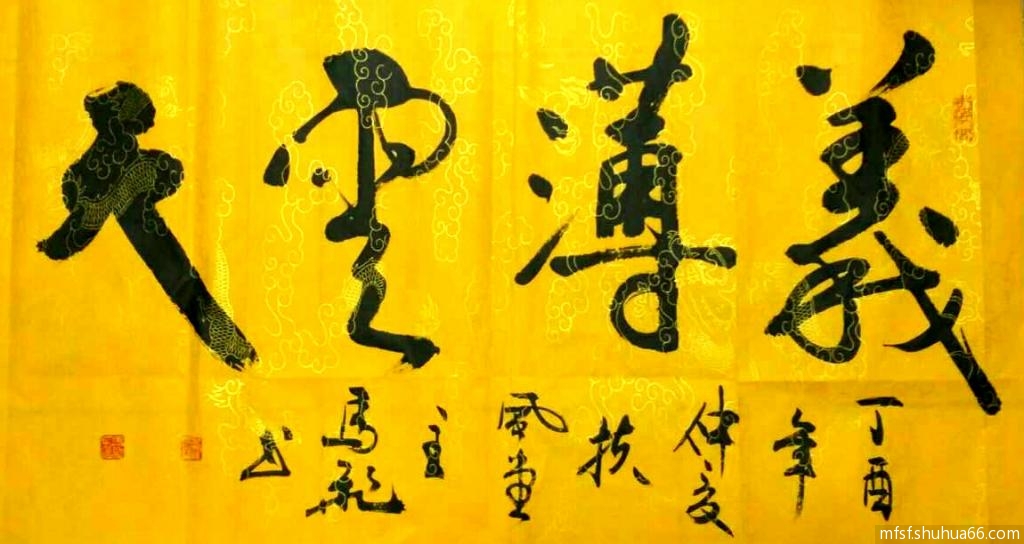 義薄雲天
丁酉年仲夏扶風堂主馬飛书
mfsf.shuhua66.com